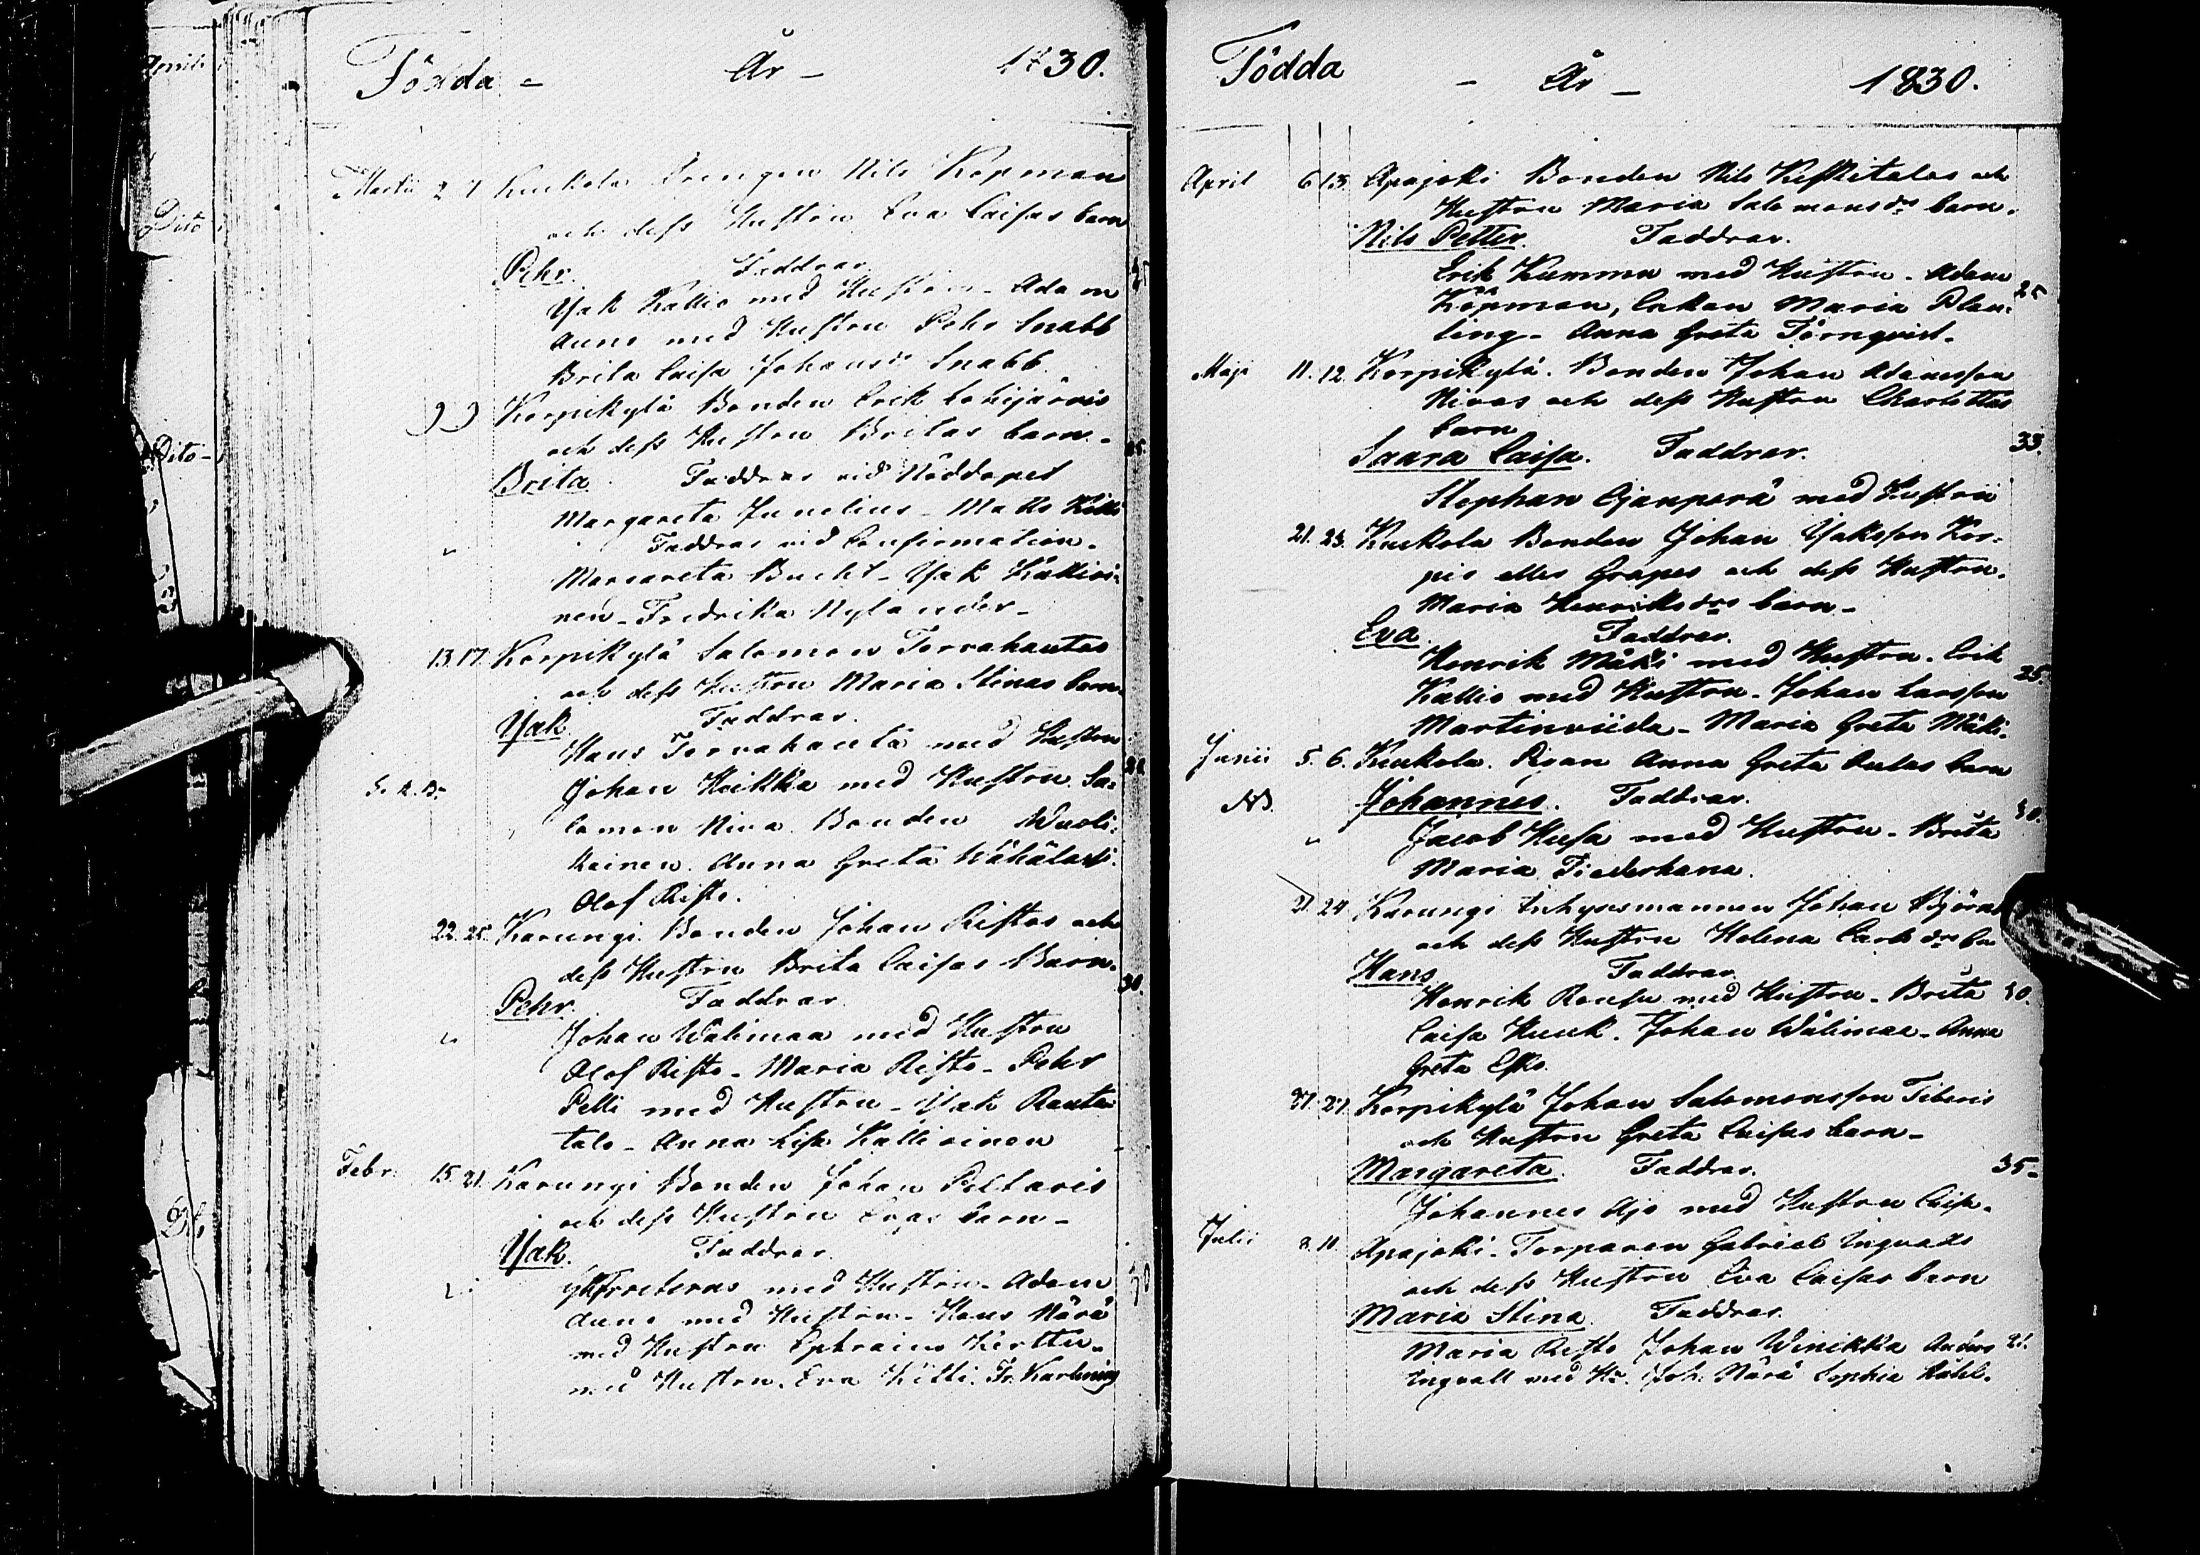 Födda - År - 1830.
Martii 2 7 Kuckola Drengen Nils Kopman
och dess Hustru Eva Caisas barn
Pehr. Faddrar
Isak Kallio med Hustru - Adam
Auno med Hustru Pehr Snabb
Brita Caisa Johansdr Snabb.
Korpikylä Bonden Erik Lohijärvis
och dess Hustru Britas barn -
Brita. Faddrar vid Nöddopet
Margareta Junelius - Matts Kitti
Faddrar vid Confirmation.
Margareta Bucht - Isak Kallioi-
nen - Fredrika Nylander -
13. 17. Korpikylä Salomon Torvahautas
och dess Hustru Maria Stinas barn
Isak Faddrar.
Hans Torvahauta med Hustru
Johan Heikka med Hustru Sa-
lomon Niva Bonden Wuoli-
kainen. Anna Greta
Olof Risto.
22. 25. Karungi. Bonden Johan Ristos och
dess Hustru Brita Caisas Barn. 30.
Pehr. Faddrar
Johan Wälimaa med Hustru
Olof Risto - Maria Risto - Pehr
Pelli med Hustru - Isak Rauta-
talo - Anna Lisa Kallioinen
Febr. 15. 21. Karungi Bonden Johan Peltaris
och dess Hustru Evas barn -
Isak. Faddrar
med Hustru - Adam
Auno med Hustru - Hans Närä
med Hustru Ephraim Kerttu-
med Hustru. Eva Kitti. Fr. Karlning
Födda - År - 1830.
April 6. 13. Apajoki Bonden Nils Keskitalos och
Hustru Maria Salomonsdrs barn.
Nils Petter. Faddrar.
Erik Kummu med Hustru - Adam
Köpman, Enkan Maria Plan- 25
ting - Anna Greta Törnqvist.
Maji 11. 12. Korpikylä. Bonden Johan Adamsson
Nivas och dess Hustru Charlottas
barn 33.
Saara Caisa. Faddrar.
Stephan Ojanperä med Hustru
21. 23. Kuckola Bonden Johan Isaksson Kor-
pis eller Grapes och dess Hustru.
Maria Henriksdrs barn -
Eva. Faddrar.
Henrik Mäki med Hustru. Erik
Kallio med Hustru - Johan Larsson 25.
Martinviida - Maria Greta Mäki.
Junii 5. 6. Kuckola. Pigan Anna Greta Aulas barn
NB. Johannes. Faddrar. 20.
Jacob Husa med Hustru - Brita
Maria Fiederhana.
21. 24 Karungi Inhysesmannen Johan Björns
och dess Hustru Helena Carlsdrs
Hans Faddrar
Henrik Rousu med Hustru - Brita 40.
Caisa Kuuk. Johan Wälimaa - Anna
Greta Esko.
27. 27. Korpikylä Johan Salomonsson Tiberis
och Hustru Greta Caisas barn -
Margareta. Faddrar. 35-
Johannes Ajo med Hustru Caisa.
Julii 8. 11. Apajoki. Torparen Gabriel Ingvalls
och dess Hustru Eva Caisas barn
Maria Stina. Faddrar.
Maria Risto Johan Winikka Anders 21.
Ingvall med H. Joh. Närä Sophia